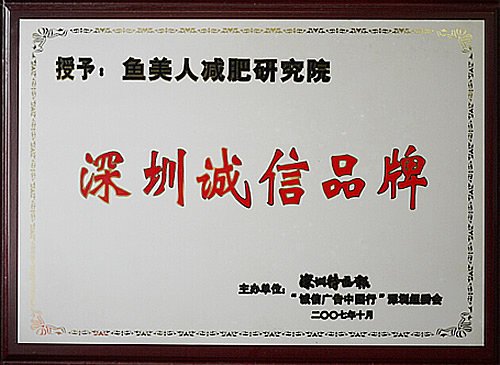 授予：鱼美人减肥研究院
深圳诚信品牌
深圳特区报
主办单位：
“诚信广告中国行”深圳组委会
二〇〇七年十月